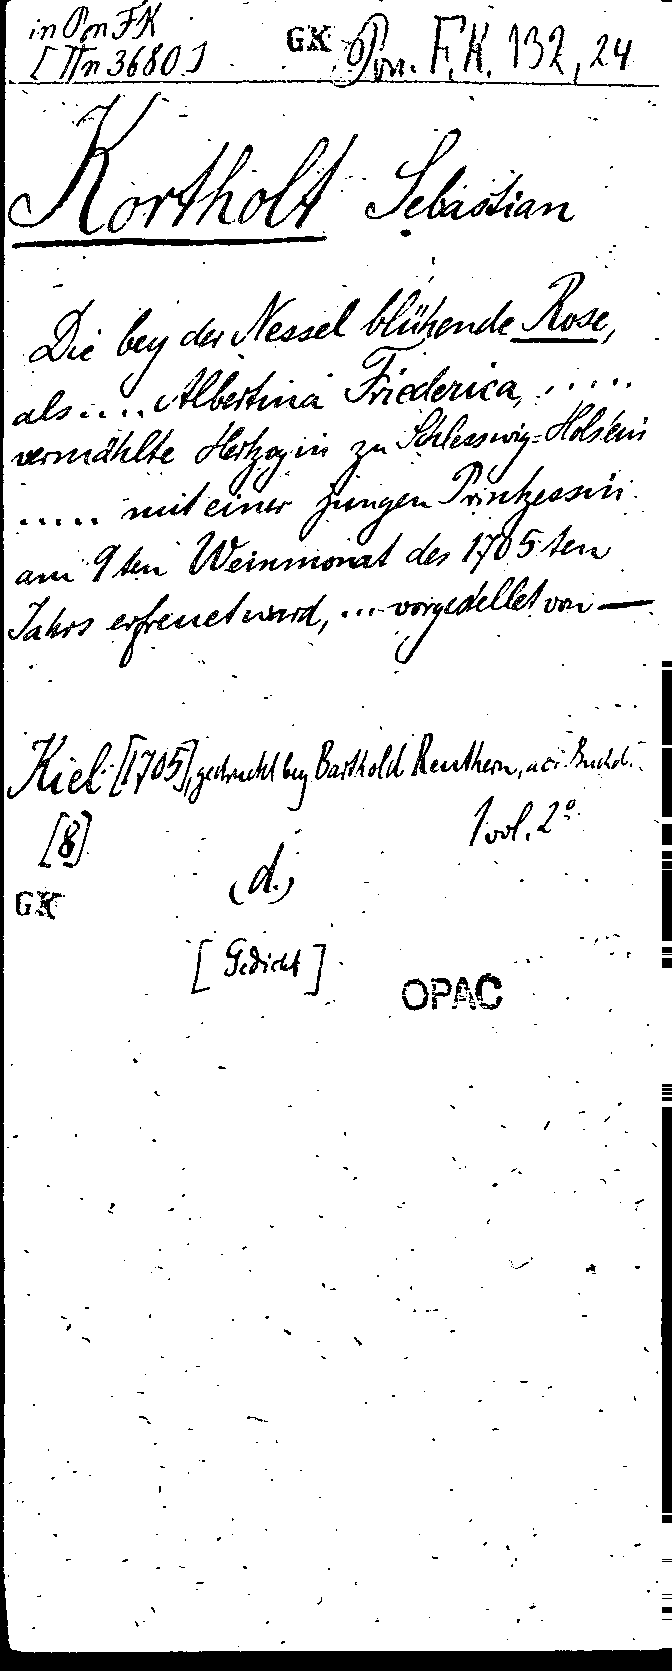 in Pon FK
GK Pon. F.K. 132, 24
[IIn 3680]
Kortholt Sebastian
Die bey der Nessel blühende Rose,
als .... Albertina Friederica, .....
vermählte Hertzogin zu Schlesswig-Holstein
..... mit einer jungen Printzessin
am 9ten Weinmonat des 1705ten
Jahrs erfreuet ward, ... vorgestellet von —
Kiel [1705], gedruckt bey Barthold Reuthern, aci. Buchd.
[8] 1 vol. 2°
GK (d.)
[Gedicht]
OPAC